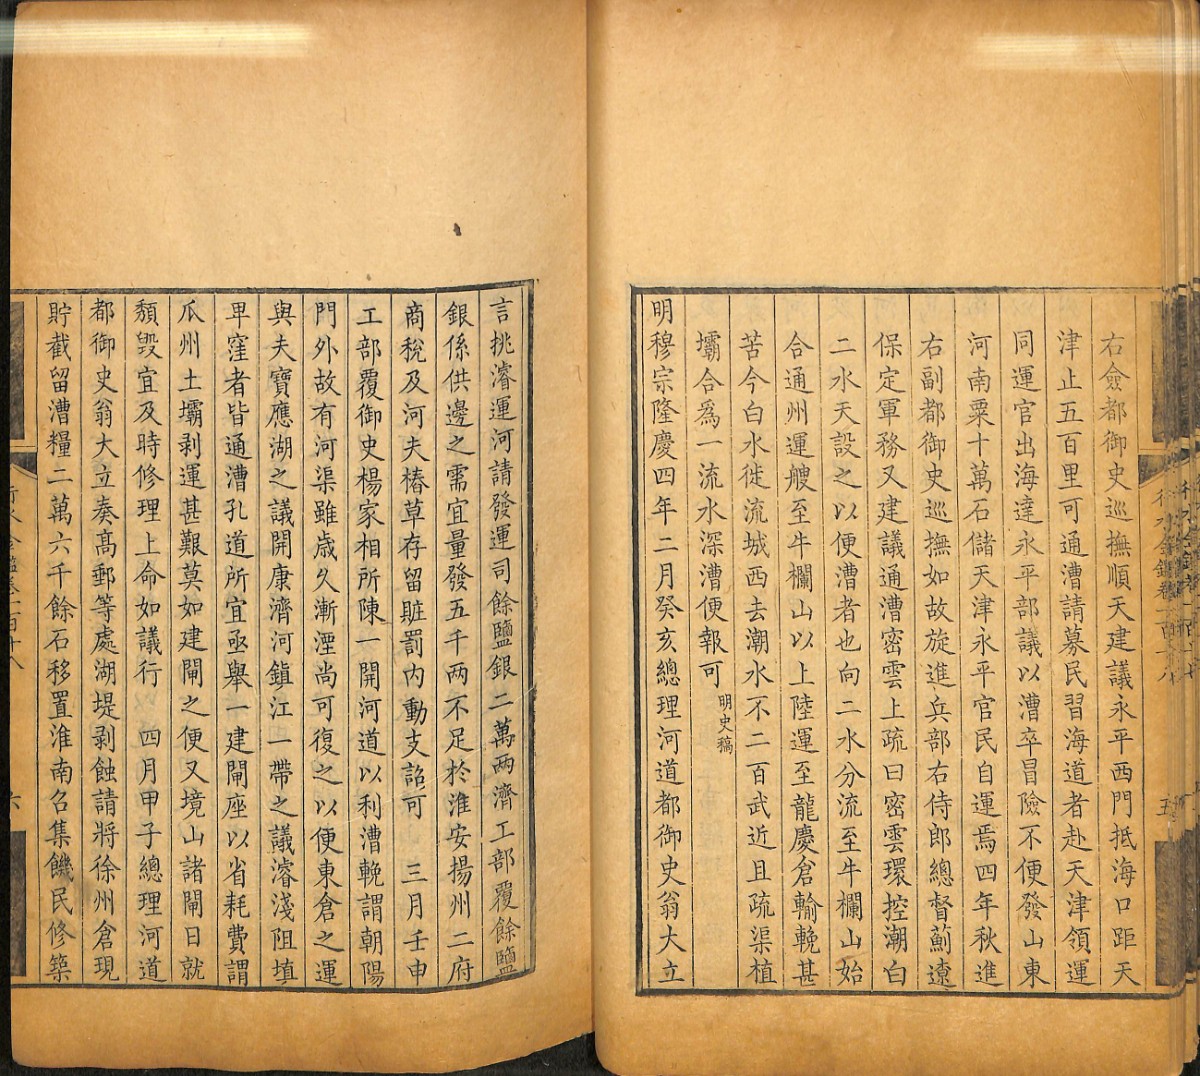 右僉都御史巡撫順天建議永平西門抵海口距天
津止五百里可通漕請募民習海道者赴天津領運
同運官出海達永平部議以漕卒冒險不便發山東
河南粟十萬石儲天津永平官民自運焉四年秋進
右副都御史巡撫如故旋進兵部右侍郎總督薊遼
保定軍務又建議通漕密雲上疏曰密雲環控潮白
二水天設之以便漕者也向二水分流至牛欄山始
合通州運艘至牛欄山以上陸運至龍慶倉輸輓甚
苦今白水徙流城西去潮水不二百武近且疏渠植
壩合爲一流水深漕便報可明史稿
明穆宗隆慶四年二月癸亥總理河道都御史翁大立
言挑濬運河請發運司餘鹽銀二萬两濟工部覆餘鹽
銀係供邊之需宜量發五千两不足於淮安揚州二府
商稅及河夫樁草存留贓罰内動支詔可 三月壬申
工部覆御史楊家相所陳一開河道以利漕輓謂朝陽
門外故有河渠雖歳久漸湮尚可復之以便東倉之運
與夫寶應湖之議開康濟河鎭江一帶之議濬淺阻填
卑窪者皆通漕孔道所宜亟舉一建閘座以省耗費謂
瓜州土壩剥運甚艱莫如建閘之便又境山諸閘日就
頽毁宜及時修理上命如議行 四月甲子總理河道
都御史翁大立奏髙郵等處湖堤剥蝕請將徐州倉現
貯截留漕糧二萬六千餘石移置淮南召集饑民修築